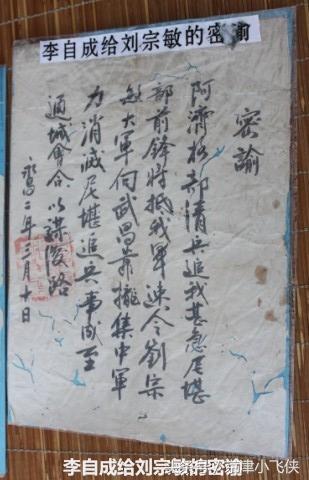 李自成给刘宗敏的密谕
密谕
阿濟格部清兵追我甚急尾堪
部前鋒将抵我軍速令劉宗
敏大軍向武昌靠攏集中軍
力消滅尾堪追兵事成至
通城會合以謀後路
永昌二年三月十日
李自成给刘宗敏的密谕
津小飞侠